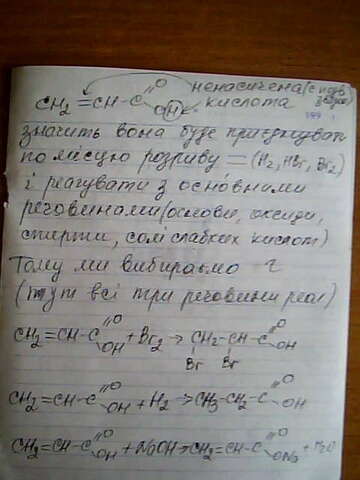 CH2=CH-C
=O
OH
ненасичена (є подв
звязок)
кислота
значить вона буде приєднувати
по місцю розриву = (H2, HBr, Br2)
і реагувати з основними
речовинами (основи, оксиди,
спирти, солі слабких кислот)
Тому ми вибираємо Г
(тут всі три речовини реаг)
CH2=CH-C=O OH + Br2 → CH2-CH-C=O OH
Br Br
CH2=CH-C=O OH + H2 → CH3-CH2-C=O OH
CH2=CH-C=O OH + NaOH → CH2=CH-C=O ONa + H2O